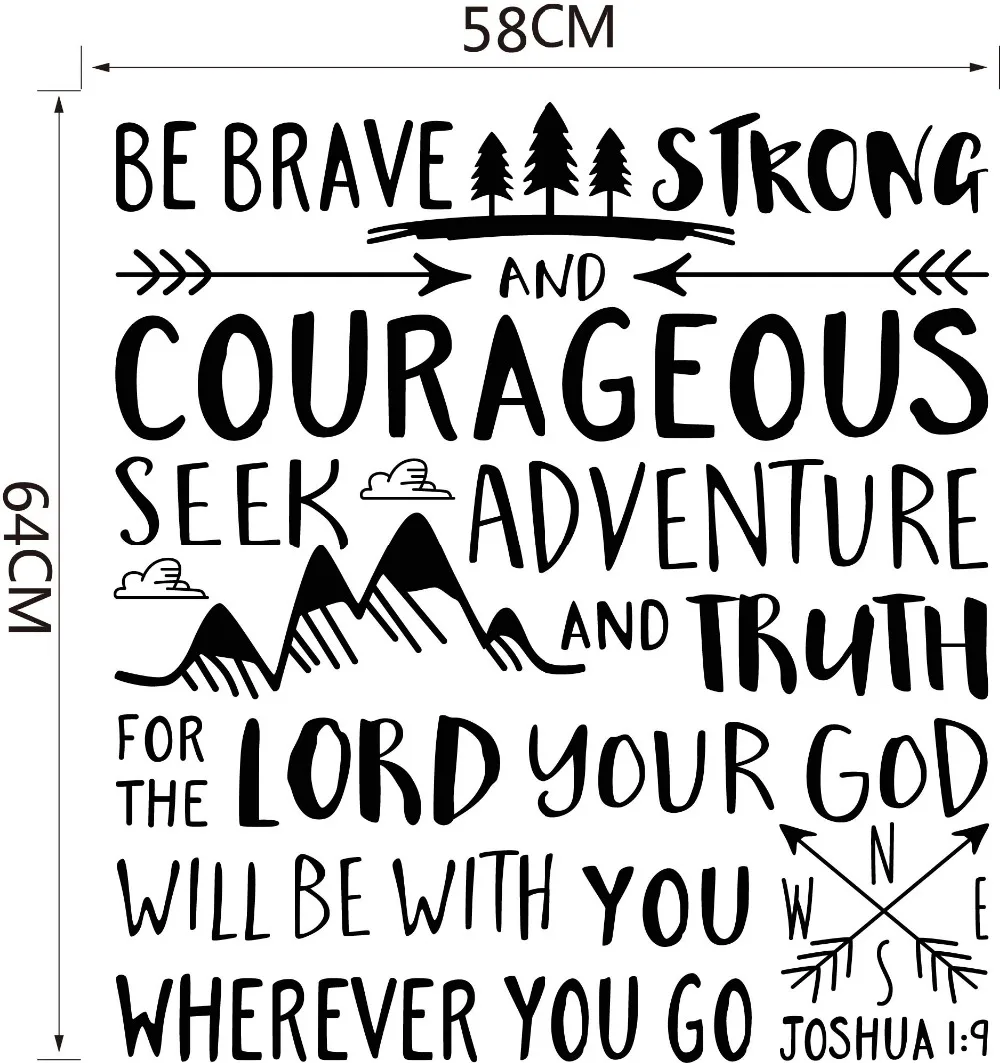 58CM
64CM
BE BRAVE STRONG
AND
COURAGEOUS
SEEK ADVENTURE
AND TRUTH
FOR THE LORD YOUR GOD
WILL BE WITH YOU
WHEREVER YOU GO
N
W E
S
JOSHUA 1:9